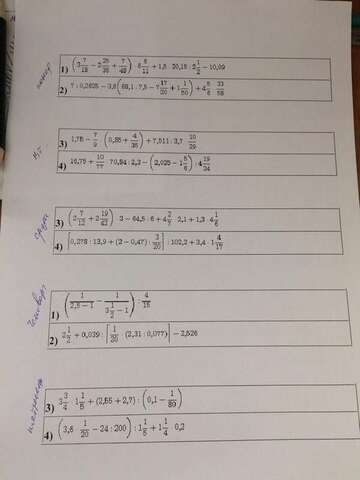 1) (3 7/18 − 2 25/36 + 7/48) · 6 6/11 + 1,8 · 20,15 : 2 1/2 − 10,09
2) 7 : 0,2625 − 3,6 (68,1 : 7,5 − 7 17/20 + 1 1/50) + 4 5/6 · 33/58
3) 1,75 − 7/9 · (0,85 + 4/35) + 7,511 : 3,7 · 10/29
4) 16,75 + 10/77 · 70,84 : 2,3 − (2,025 − 1 5/6) : 4 19/24
3) (2 7/12 + 2 19/42) · 3 − 64,5 : 6 + 4 2/7 · 2,1 + 1,3 · 4 1/6
4) [0,278 : 13,9 + (2 − 0,47) : 3/20] : 102,2 + 3,4 · 1 4/17
Четверг
1) (1/(2,5 − 1) − 1/(3 1/2 − 1)) : 4/15
2) 2 1/2 + 0,039 : [1/20 · (2,31 : 0,077)] − 2,526
3) 3 3/4 · 1 1/5 + (2,55 + 2,7) : (0,1 − 1/80)
4) (3,6 · 1/20 − 24 : 200) : 1 1/5 + 1 1/4 · 0,2